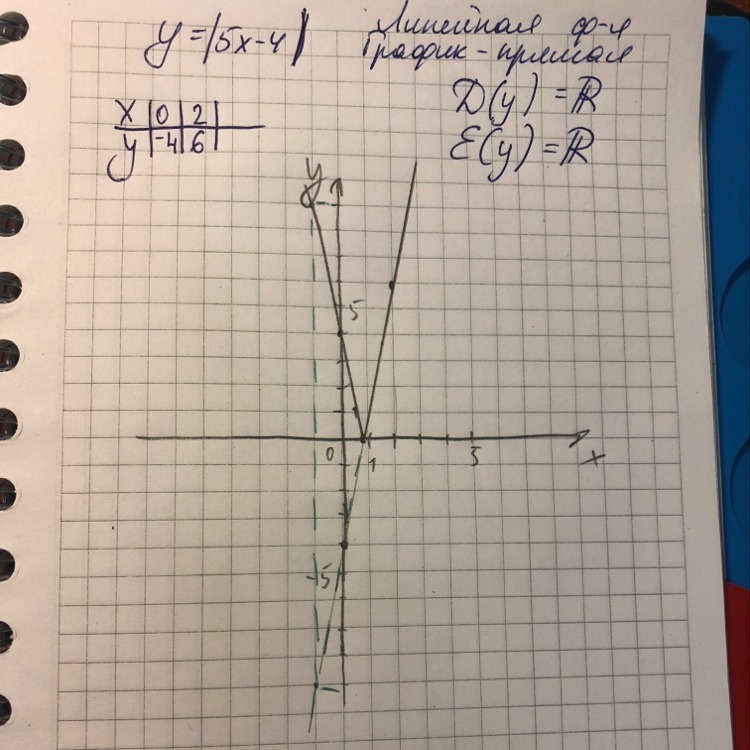 y = |5x-4|
Линейная ф-я
График - прямая
D(y) = ℝ
E(y) = ℝ
x | 0 | 2 |
y | -4 | 6 |
y
5
0
1
5
x
-5